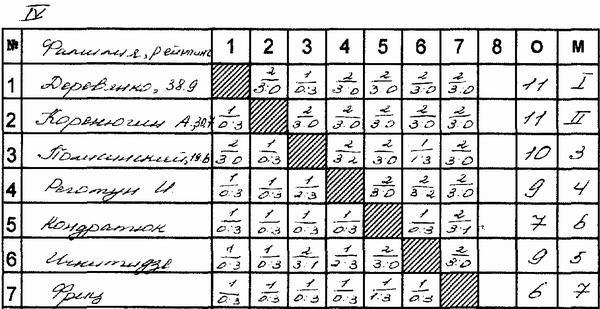 IV
№ Фамилия, рейтинг 1 2 3 4 5 6 7 8 О М
1 Деревянко, 38.9 2/3:0 1/0:3 2/3:0 2/3:0 2/3:0 2/3:0 11 I
2 Коренюгин А, 30,7 1/0:3 2/3:0 2/3:0 2/3:0 2/3:0 2/3:0 11 II
3 2/3:0 1/0:3 2/3:2 2/3:0 1/1:3 2/3:0 10 3
4 Реготун И. 1/0:3 1/0:3 1/2:3 2/3:0 2/3:2 2/3:0 9 4
5 Кондратюк 1/0:3 1/0:3 1/0:3 1/0:3 1/0:3 2/3:1 7 6
6 1/0:3 1/0:3 2/3:1 1/2:3 2/3:0 2/3:0 9 5
7 Френц 1/0:3 1/0:3 1/0:3 1/0:3 1/1:3 1/0:3 6 7